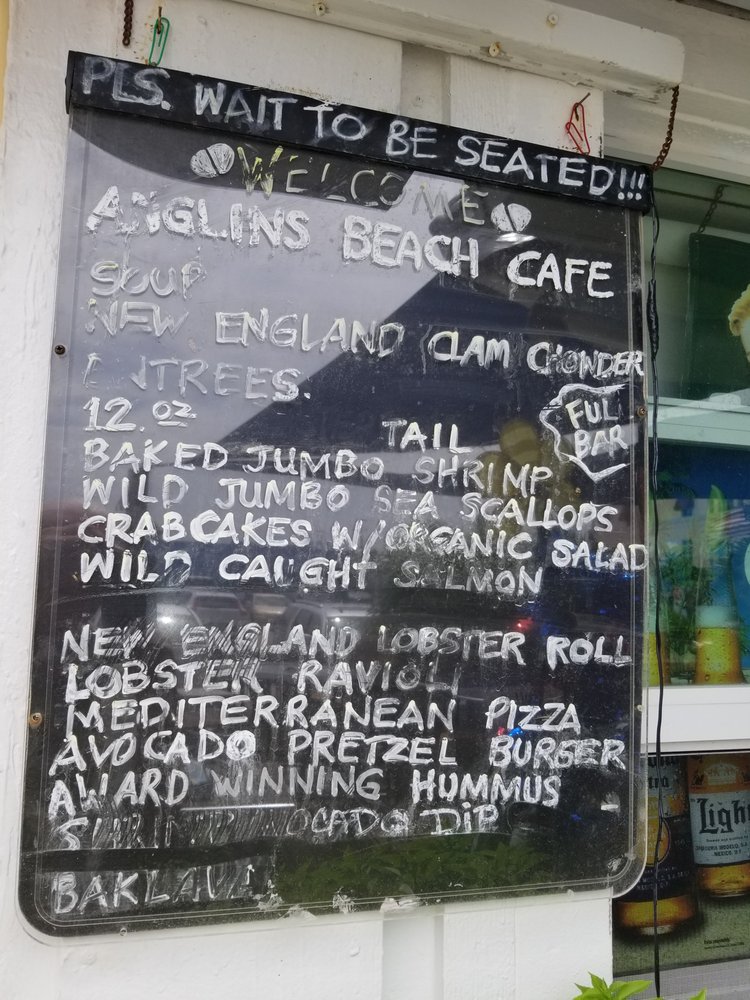 PLS. WAIT TO BE SEATED!!!
WELCOME
ANGLINS BEACH CAFE
SOUP
NEW ENGLAND CLAM CHOWDER
ENTREES.
12.OZ TAIL
FUL
BAR
BAKED JUMBO SHRIMP
WILD JUMBO SEA SCALLOPS
CRABCAKES W/ORGANIC SALAD
WILD CAUGHT SALMON
NEW ENGLAND LOBSTER ROLL
LOBSTER RAVIOLI
MEDITERRANEAN PIZZA
AVOCADO PRETZEL BURGER
AWARD WINNING HUMMUS
SHRIMP AVOCADO DIP
BAKLAVA
Light